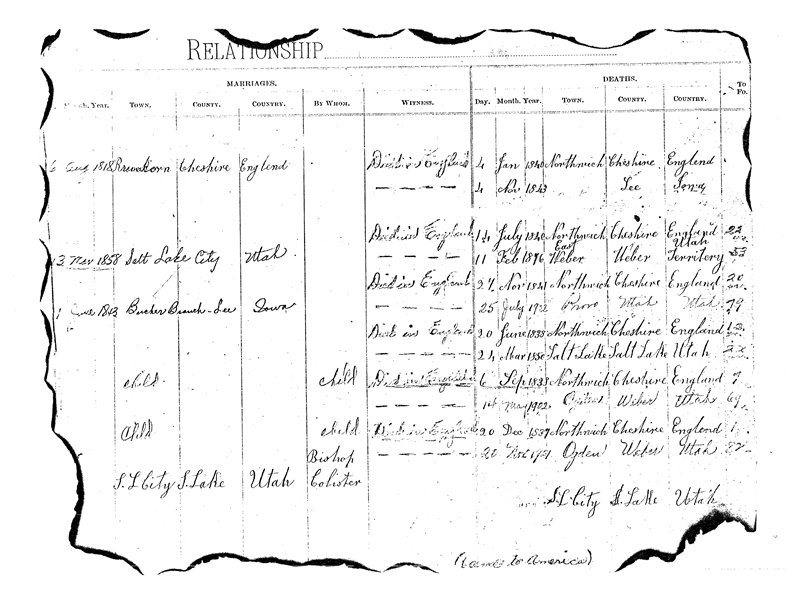 RELATIONSHIP
MARRIAGES. DEATHS.
Year. TOWN. COUNTY. COUNTRY. BY WHOM. WITNESS. Day. Month. Year. TOWN. COUNTY. COUNTRY. To Fo.
6 Aug 1818 Cheshire Englend Died in England 4 Jan 1840 Northwich Cheshire Englend
— — — — 4 Nov 1843 Lee Iowa
Died in England 14 July 1840 Northwich Cheshire England 22
13 Nov 1858 Salt Lake City Utah — — — — 11 Feb 1896 East Weber Weber Utah Territory
Died in England 27 Nov 1841 Northwich Cheshire England 20
1 Branch-Lee Iowa — — — — 25 July Provo Utah Utah 79
Died in England 20 June 1838 Northwich Cheshire England
— — — — 24 Mar 1850 Salt Lake Salt Lake Utah
child child Died in England 6 Sep Northwich Cheshire England 7
— — — — May 1902 Ogden Weber Utah 69
child child Died in England 20 Dec 1837 Northwich Cheshire Englend 1
— — — — 20 Ogden Weber Utah 82
S.L City S. Lake Utah Bishop Colister
S.L. City S. Lake Utah
(Came to America)